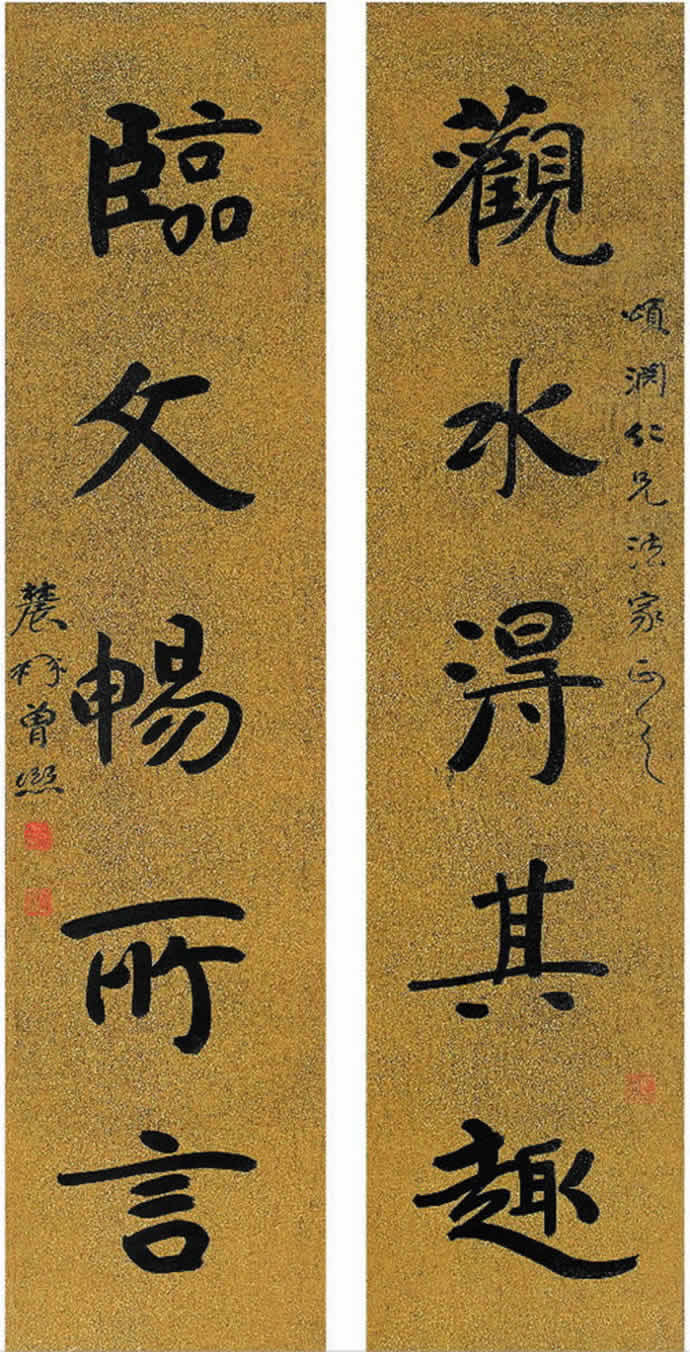 觀水得其趣
頌淵仁兄法家正之
臨文暢所言
農髯曾熙